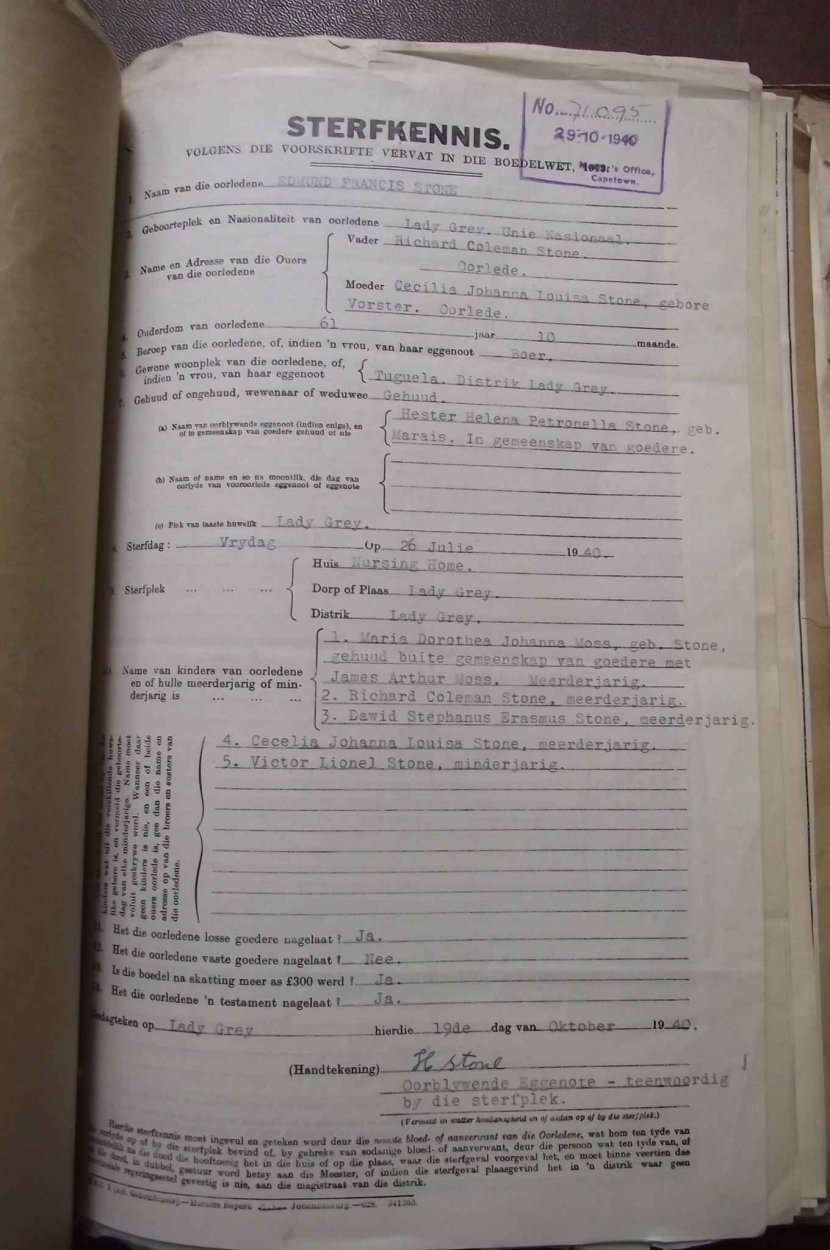 No. 71095
29-10-1940
Master's Office,
Capetown.
STERFKENNIS.
VOLGENS DIE VOORSKRIFTE VERVAT IN DIE BOEDELWET,
1. Naam van die oorledene EDMUND FRANCIS STONE
2. Geboorteplek en Nasionaliteit van oorledene Lady Grey. Unie Nasionaal.
3. Name en Adresse van die Ouers van die oorledene
Vader Richard Coleman Stone.
Oorlede.
Moeder Cecilia Johanna Louisa Stone, gebore
Vorster. Oorlede.
4. Ouderdom van oorledene 61 jaar 10 maande.
5. Beroep van die oorledene, of, indien 'n vrou, van haar eggenoot Boer.
6. Gewone woonplek van die oorledene, of,
indien 'n vrou, van haar eggenoot Tuguela. Distrik Lady Grey.
7. Gehuud of ongehuud, wewenaar of weduwee Gehuud.
(a) Naam van oorblywende eggenoot (indien enige), en
of in gemeenskap van goedere gehuud of nie
Hester Helena Petronella Stone, geb.
Marais. In gemeenskap van goedere.
(b) Naam of name en so na moontlik, die dag van
oorlyde van vooroorlede eggenoot of eggenote
(c) Plek van laaste huwelik Lady Grey.
8. Sterfdag : Vrydag Op 26 Julie 1940.
9. Sterfplek ... ... ...
Huis Nursing Home.
Dorp of Plaas Lady Grey.
Distrik Lady Grey.
10. Name van kinders van oorledene
en of hulle meerderjarig of min-
derjarig is ... ... ...
1. Maria Dorothea Johanna Moss, geb. Stone,
gehuud buite gemeenskap van goedere met
James Arthur Moss. Meerderjarig.
2. Richard Coleman Stone, meerderjarig.
3. Dawid Stephanus Erasmus Stone, meerderjarig.
4. Cecelia Johanna Louisa Stone, meerderjarig.
5. Victor Lionel Stone, minderjarig.
kinders wat uit die verskillende huwe-
like gebore is, en vermeld die geboorte-
dag van elke minderjarige. Name moet
voluit geskrywe word. Wanneer daar
geen kinders is nie, en een of beide
ouers oorlede is, gee dan die name en
adresse op van die broers en susters van
die oorledene.
11. Het die oorledene losse goedere nagelaat ? Ja.
12. Het die oorledene vaste goedere nagelaat ? Nee.
13. Is die boedel na skatting meer as £300 werd ? Ja.
14. Het die oorledene 'n testament nagelaat ? Ja.
Gedagteken op Lady Grey hierdie 19de dag van Oktober 1940.
(Handtekening) H Stone
Oorblywende Eggenote - teenwoordig
by die sterfplek.
(Vermeld in watter hoedanigheid en of aldan op of by die sterfplek.)
Hierdie sterfkennis moet ingevul en geteken word deur die naaste bloed- of aanverwant van die Oorledene, wat hom ten tyde van
die oorlyde op of by die sterfplek bevind of, by gebreke van sodanige bloed- of aanverwant, deur die persoon wat ten tyde van, of
onmiddellik na die dood die hooftoesig het in die huis of op die plaas, waar die sterfgeval voorgeval het, en moet binne veertien dae
na die dood, in dubbel, gestuur word hetsy aan die Meester, of indien die sterfgeval plaasgevind het in 'n distrik waar geen
provinsiale regeringsetel gevestig is nie, aan die magistraat van die distrik.
Johannesburg.—628. 241083.